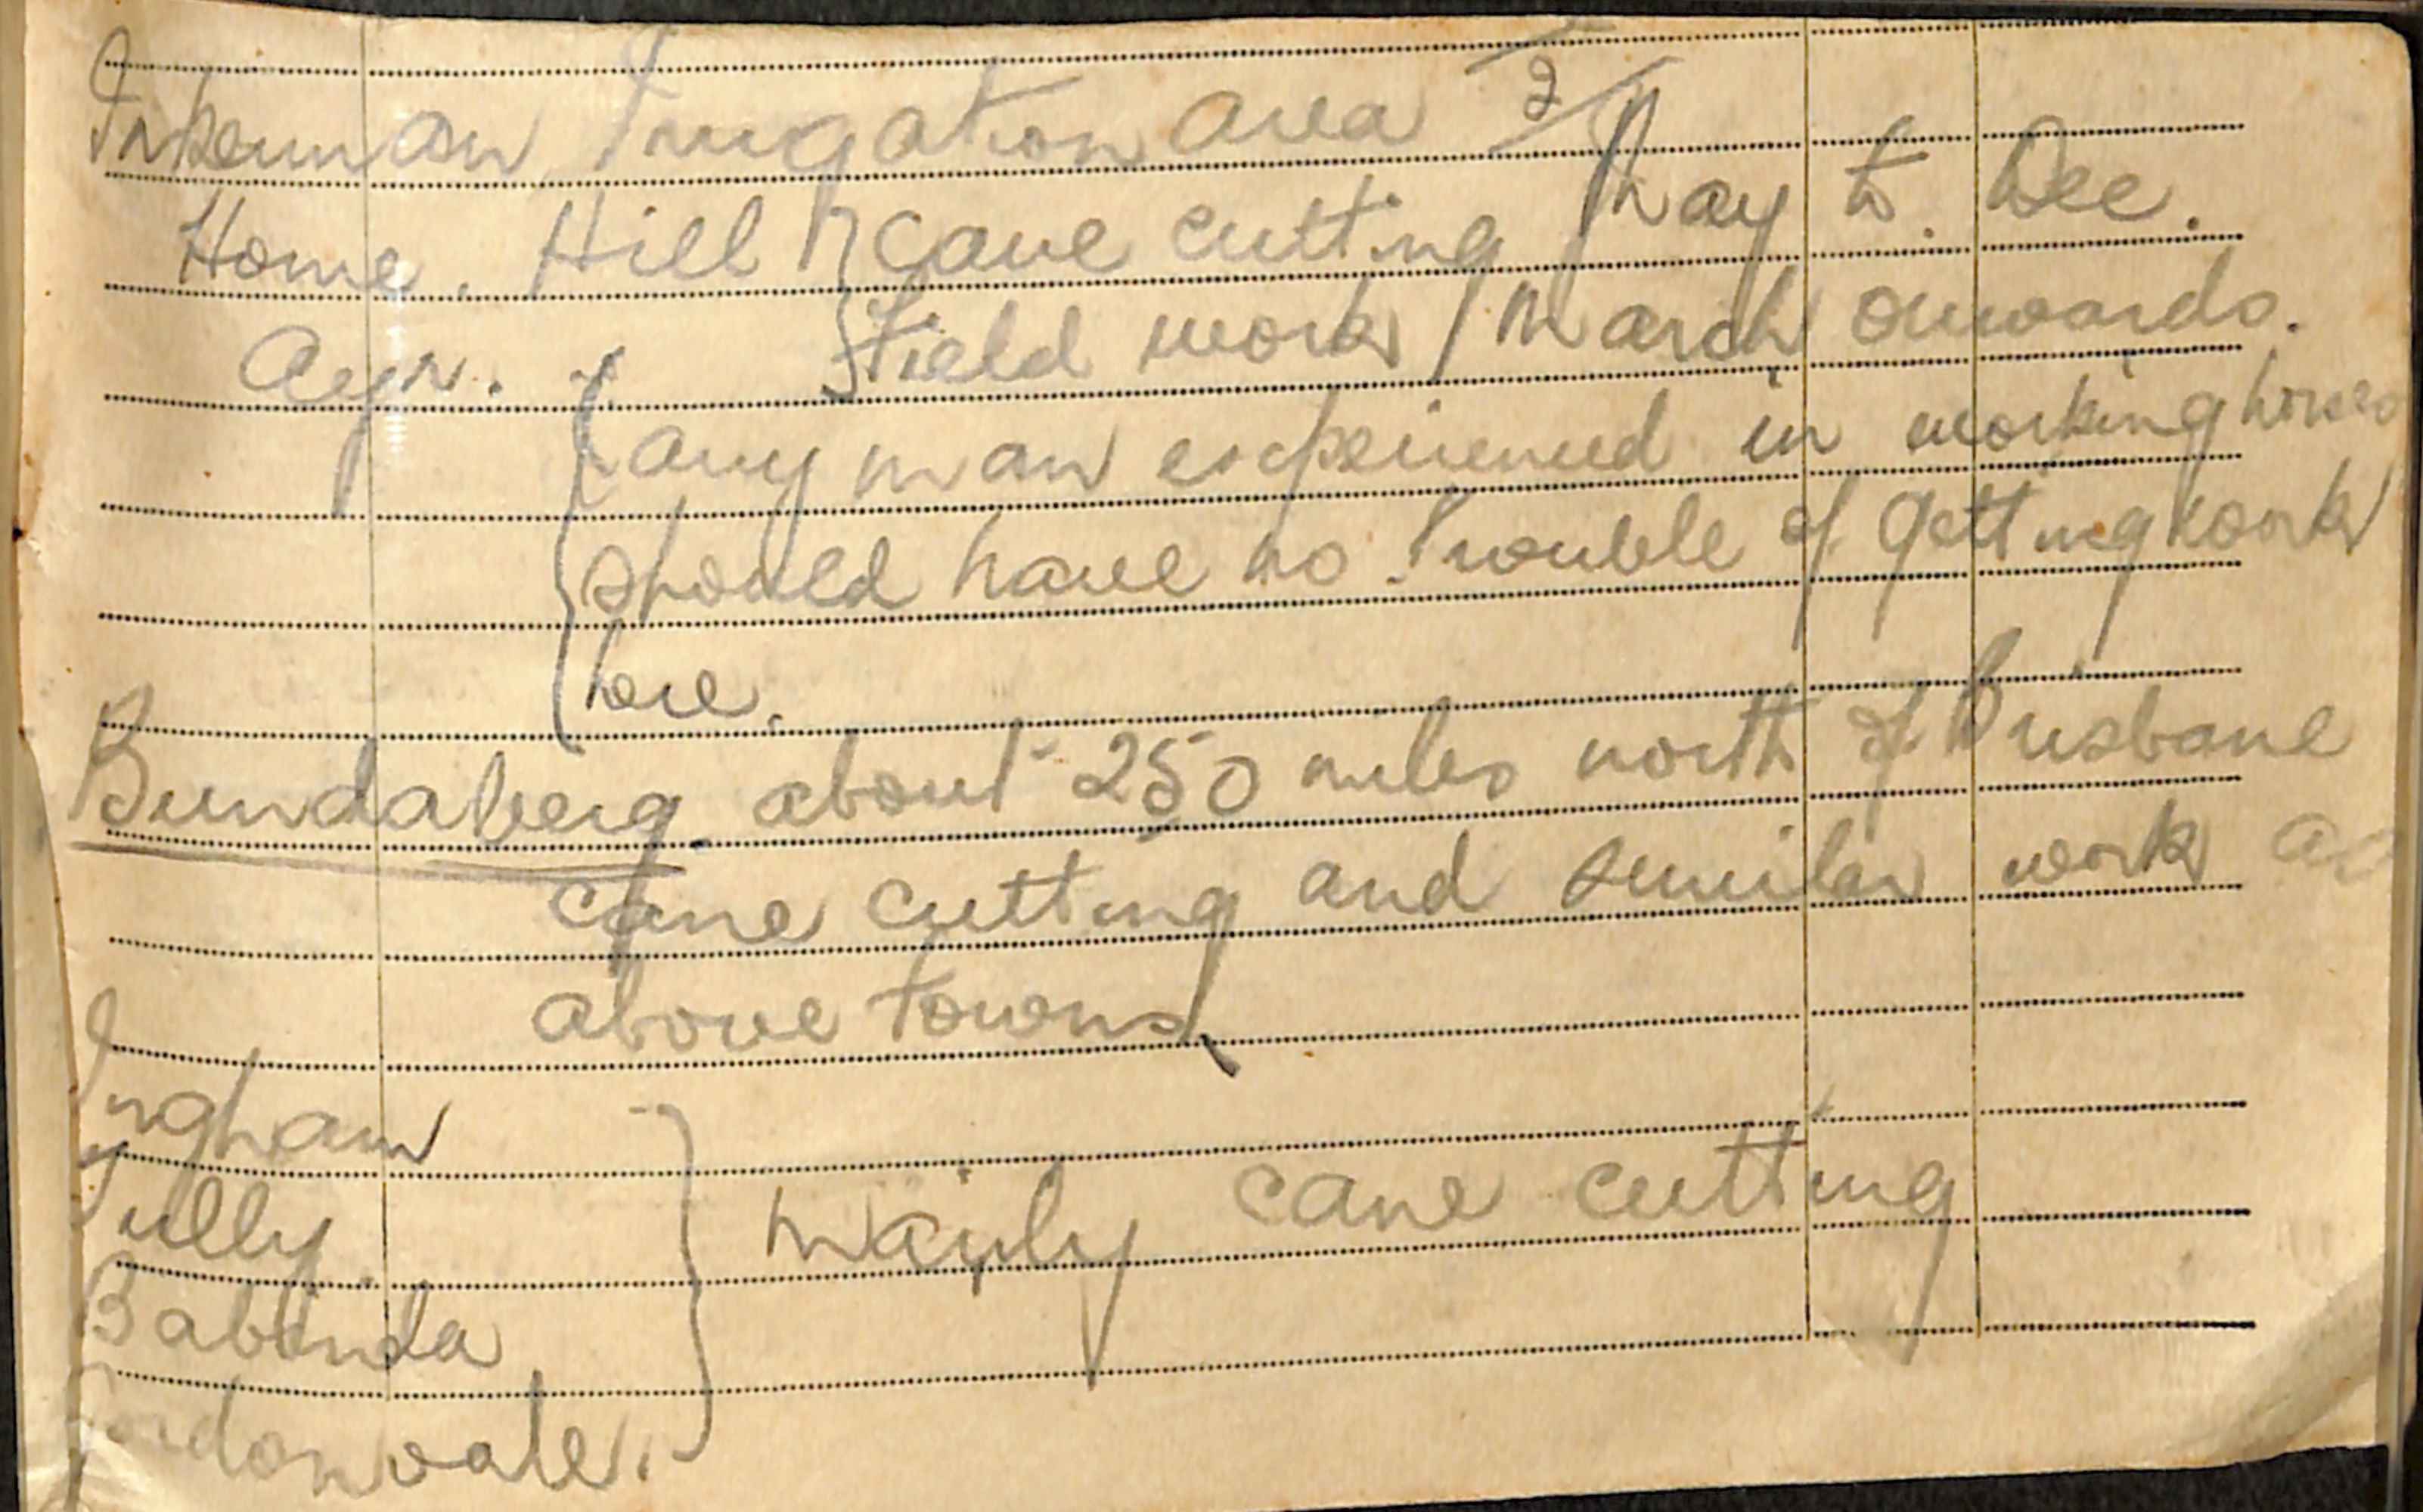 2
Inkerman Irrigation Area
Home Hill } Cane cutting May to Dec.
Ayr. } Field work / March onwards.
{ any man experienced in working horses
should have no trouble of getting work
here.
Bundaberg about 250 miles north of Brisbane
cane cutting and similar work as
above towns
Ingham
Tully
Babinda } Mainly cane cutting
Gordonvale.